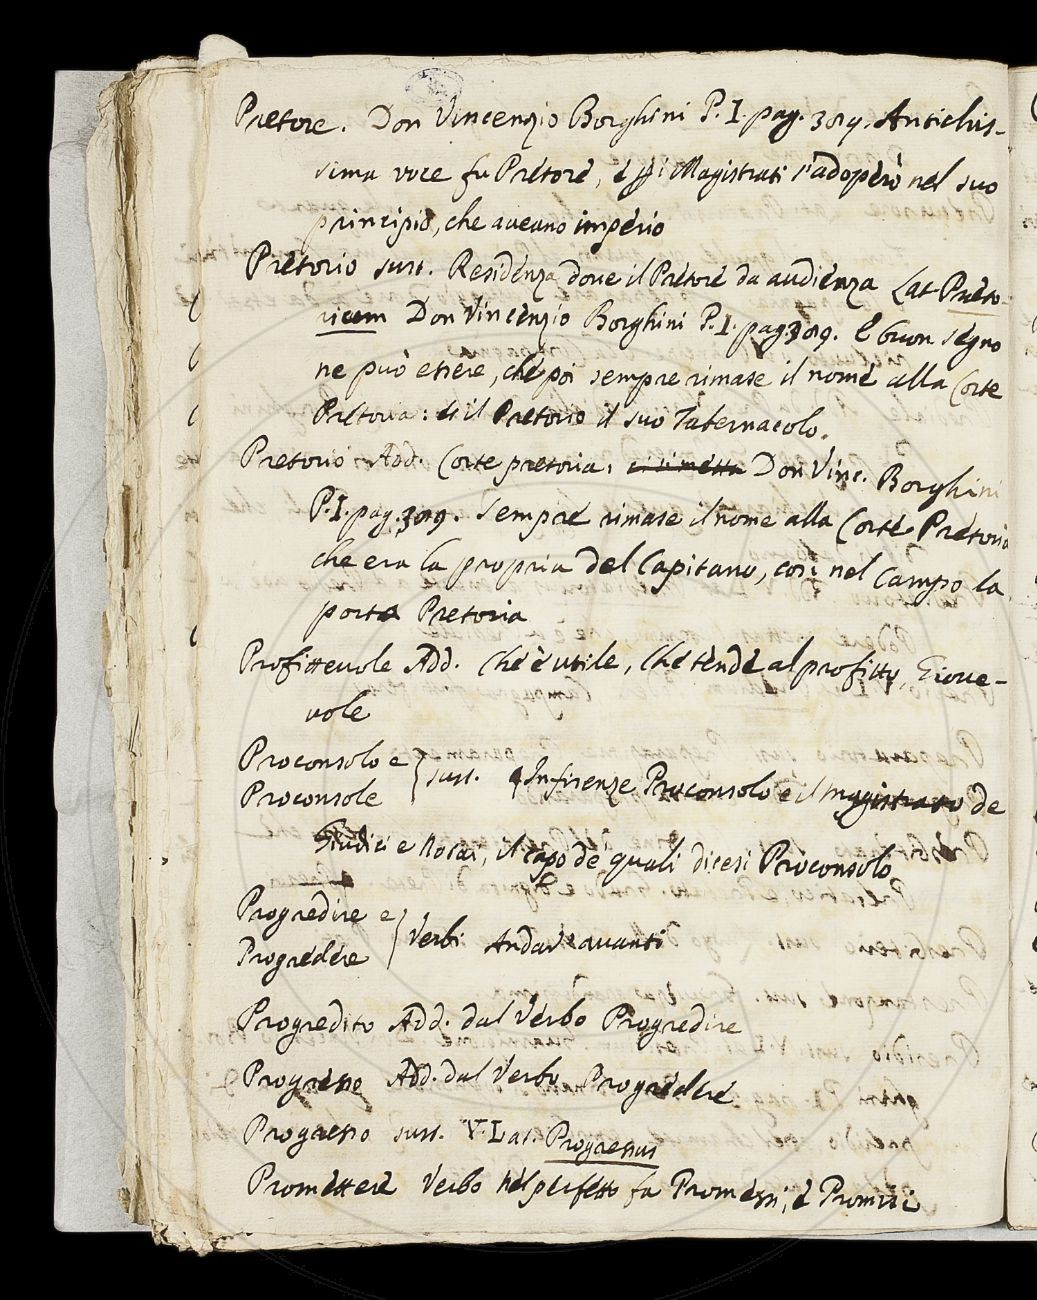 Pretore. Don Vincenzio Borghini P. I. pag. 309. Antichis-
sima voce fu Pretore, e Magistrati s'adoperò nel suo
principio, che aveano impèrio
Pretorio sust. Residènza dove il Pretore da audiènza Lat Præto-
rium Don Vincènzio Borghini P. I. pag. 309. E buon sègno
ne può essere, che poi sempre rimase il nome alla Corte
Pretoria: il Pretorio il suo Tabernacolo.
Pretorio Add. Corte pretoria, Don Vinc. Borghini
P. I. pag. 309. Sempre rimase il nome alla Corte Pretoria
che era la propria del Capitano, così nel Campo la
porta Pretoria
Profittevole Add. Che è utile, Che tènde al profitto, Giove-
vole
Proconsolo e
Proconsole } sust. In firenze Proconsolo è il magistrato de
Giudici e Notai, il capo de quali dicesi Proconsolo
Progredire e
Progrèdere } Verbi Andare avanti
Progredito Add. dal Verbo Progredire
Progrèsso Add. dal Verbo Progrèdere
Progresso sust. V. Lat. Progressus
Promèttere Verbo nel perfetto fa Promessi, è Promisi